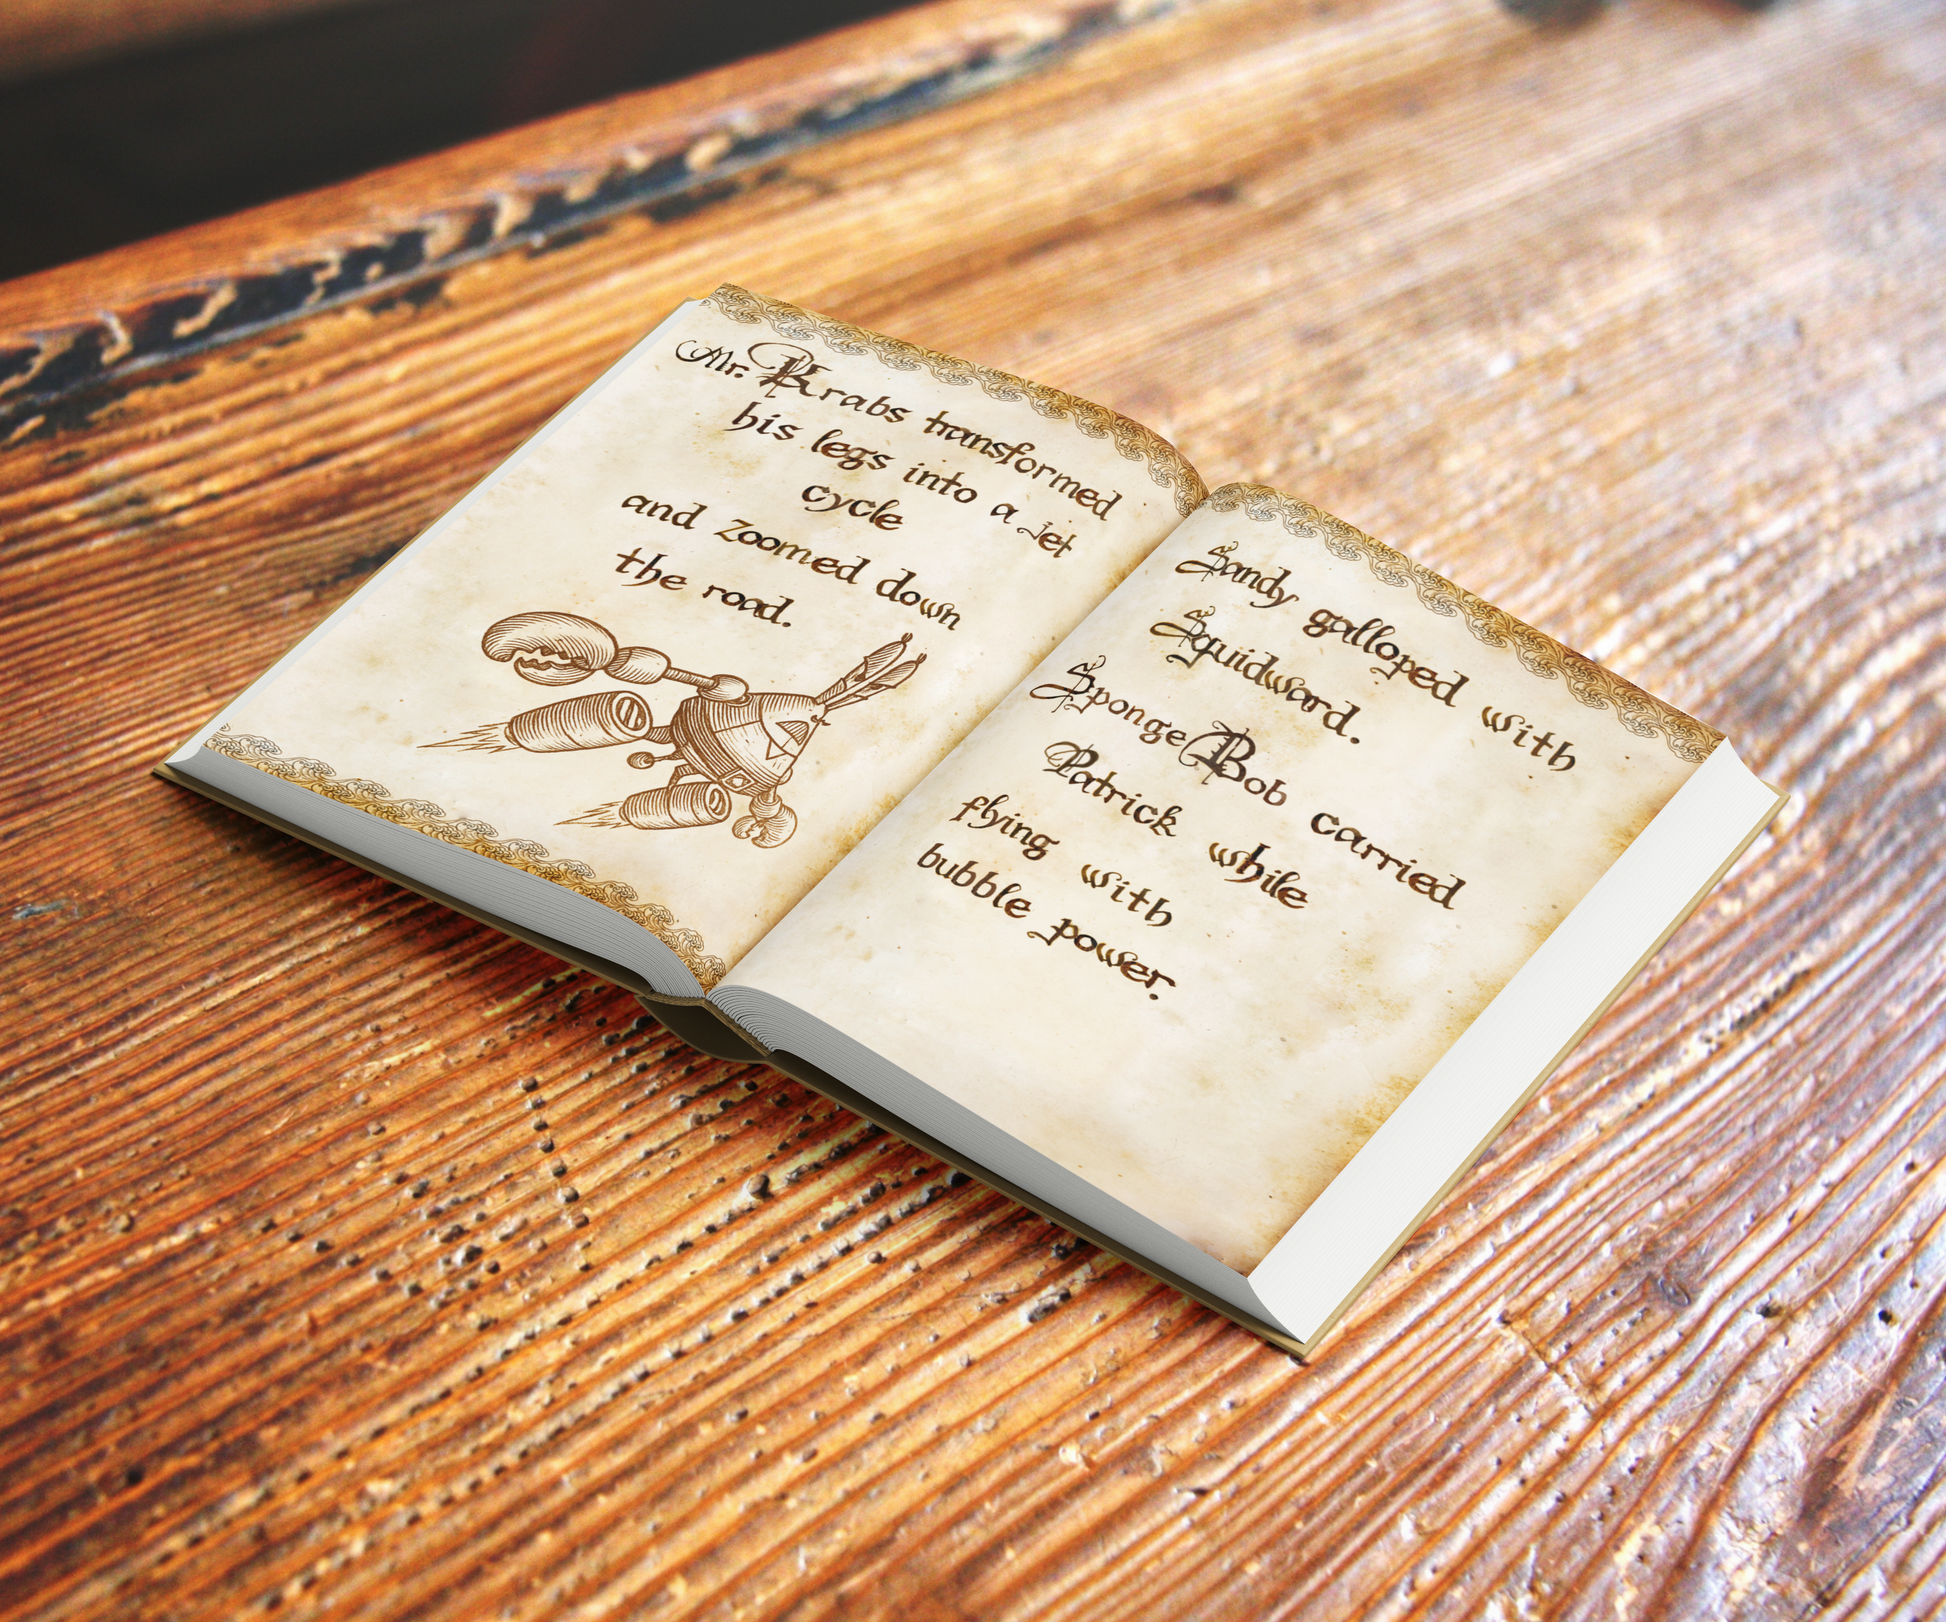 Mr. Krabs transformed
his legs into a Jet
cycle
and zoomed down
the road.
Sandy galloped with
Squidward.
SpongeBob carried
Patrick while
flying with
bubble power.